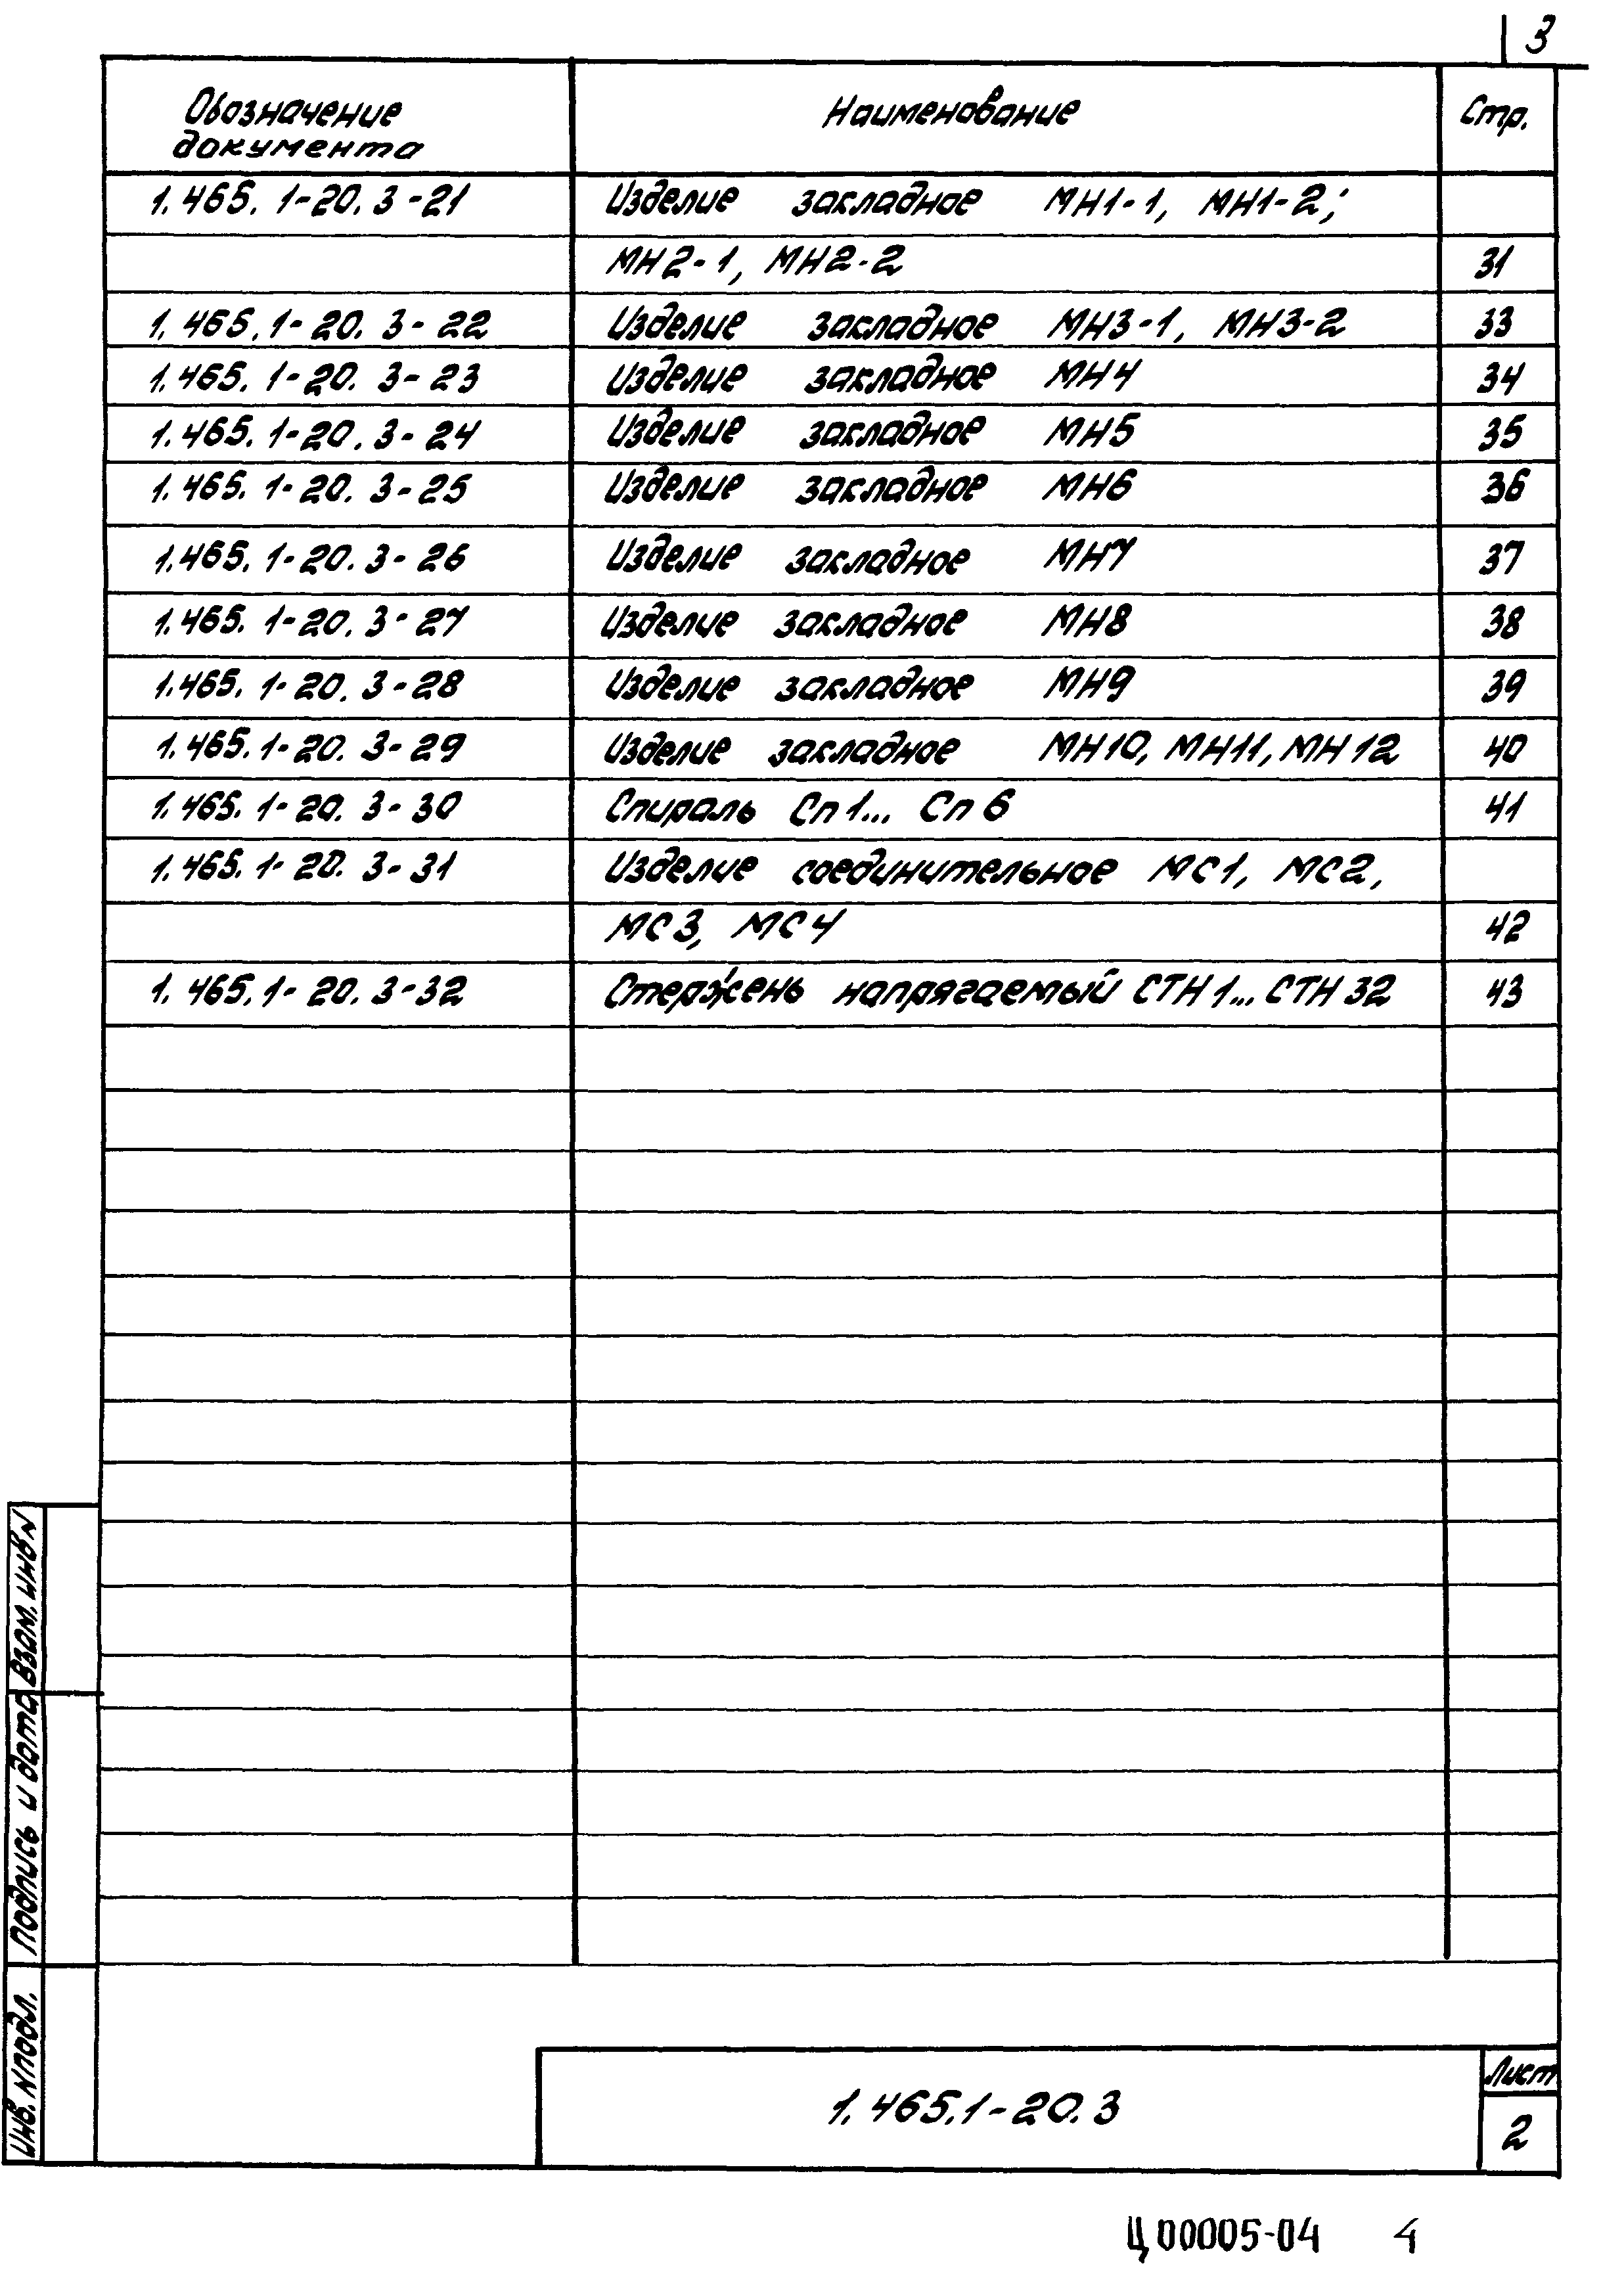 3
Обозначение документа Наименование Стр.
1.465.1-20.3-21 Изделие закладное МН1-1, МН1-2;
МН2-1, МН2-2 31
1.465.1-20.3-22 Изделие закладное МН3-1, МН3-2 33
1.465.1-20.3-23 Изделие закладное МН4 34
1.465.1-20.3-24 Изделие закладное МН5 35
1.465.1-20.3-25 Изделие закладное МН6 36
1.465.1-20.3-26 Изделие закладное МН7 37
1.465.1-20.3-27 Изделие закладное МН8 38
1.465.1-20.3-28 Изделие закладное МН9 39
1.465.1-20.3-29 Изделие закладное МН10, МН11, МН12 40
1.465.1-20.3-30 Спираль Сп1... Сп6 41
1.465.1-20.3-31 Изделие соединительное МС1, МС2,
МС3, МС4 42
1.465.1-20.3-32 Стержень напрягаемый СТН1... СТН32 43
Взам. инв. N
Подпись и дата
Инв. N подл.
1.465.1-20.3
Лист
2
Ц00005-04 4